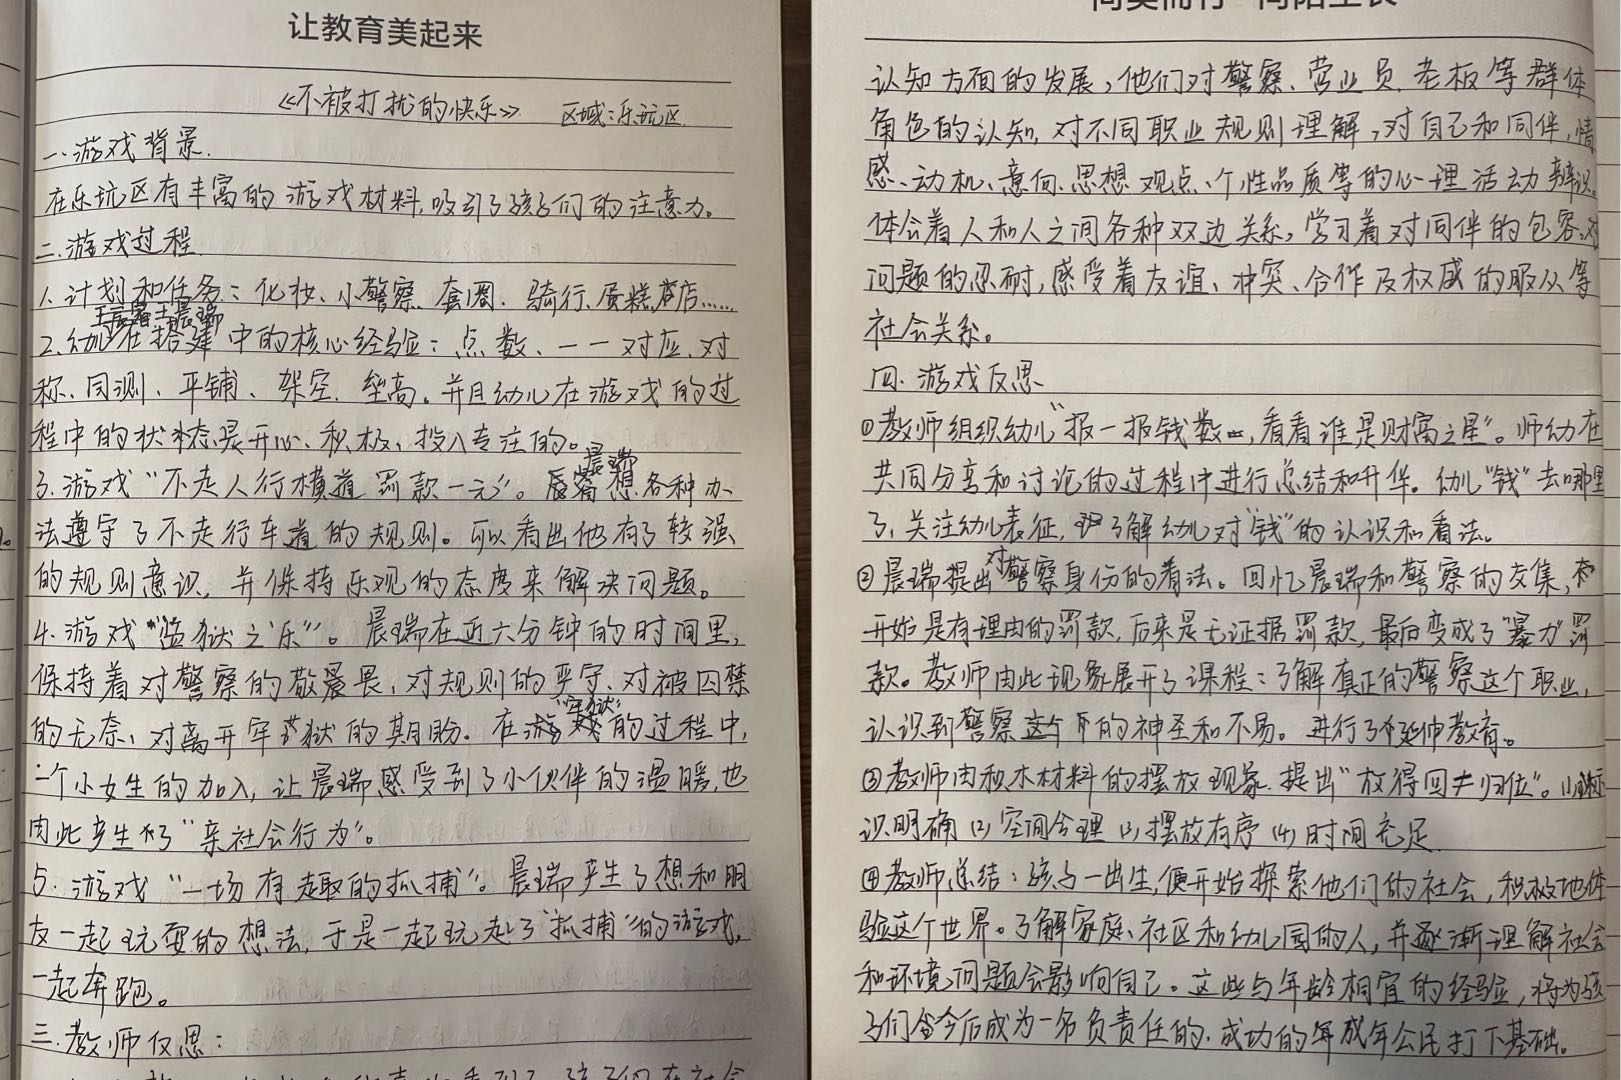 让教育美起来
《不被打扰的快乐》 区域：乐玩区
一、游戏背景.
在乐玩区有丰富的游戏材料,吸引了孩子们的注意力。
二.游戏过程.
1.计划和任务：化妆、小警察、套圈、骑行、蛋糕店......
晨瑞
2.幼儿在搭建中的核心经验：点数、一一对应、对
称、围测、平铺、架空、垒高。并且幼儿在游戏的过
程中的状态是开心、积极、投入专注的。
晨瑞
3.游戏“不走人行横道 罚款一元”。想各种办
法遵守了不走行车道的规则。可以看出他有了较强
的规则意识，并保持乐观的态度来解决问题。
4.游戏“监狱之‘乐’”。晨瑞在近六分钟的时间里,
保持着对警察的敬畏、对规则的严守、对被囚禁
“牢狱”
的无奈、对离开牢狱的期盼。在的过程中,
一个小女生的加入,让晨瑞感受到了小伙伴的温暖,也
由此产生了“亲社会行为”。
5.游戏“一场有趣的抓捕”。晨瑞产生了想和朋
友一起玩耍的想法,于是一起玩起了“抓捕”的游戏,
一起奔跑。
三.教师反思：
认知方面的发展,他们对警察、营业员、老板等群体
角色的认知,对不同职业规则理解,对自己和同伴,情
感、动机、意向、思想观点、个性品质等的心理活动辨识。
体会着人和人之间各种双边关系,学习着对同伴的包容,对
问题的忍耐,感受着友谊、冲突、合作及权威的服从等
社会关系。
四.游戏反思
①教师组织幼儿“报一报钱数，看看谁是财富之星”。师幼在
共同分享和讨论的过程中进行总结和升华。幼儿“钱”去哪里
了,关注幼儿表征,了解幼儿对“钱”的认识和看法。
②晨瑞提出对警察身份的看法。回忆晨瑞和警察的交集,
开始是有理由的罚款,后来是无证据罚款,最后变成了“暴力”罚
款。教师由此现象展开了课程：了解真正的警察这个职业,
认识到警察的神圣和不易。进行了延伸教育。
③教师由积木材料的摆放现象.提出“放得回≠归位”。(1)标
识明确 (2)空间合理 (3)摆放有序 (4)时间充足
④教师总结：孩子一出生,便开始探索他们的社会，积极地体
验这个世界。了解家庭、社区和幼儿园的人,并逐渐理解社会
和环境问题会影响自己。这些与年龄相宜的经验，将为孩
子们今后成为一名负责任的.成功的成年公民打下基础。